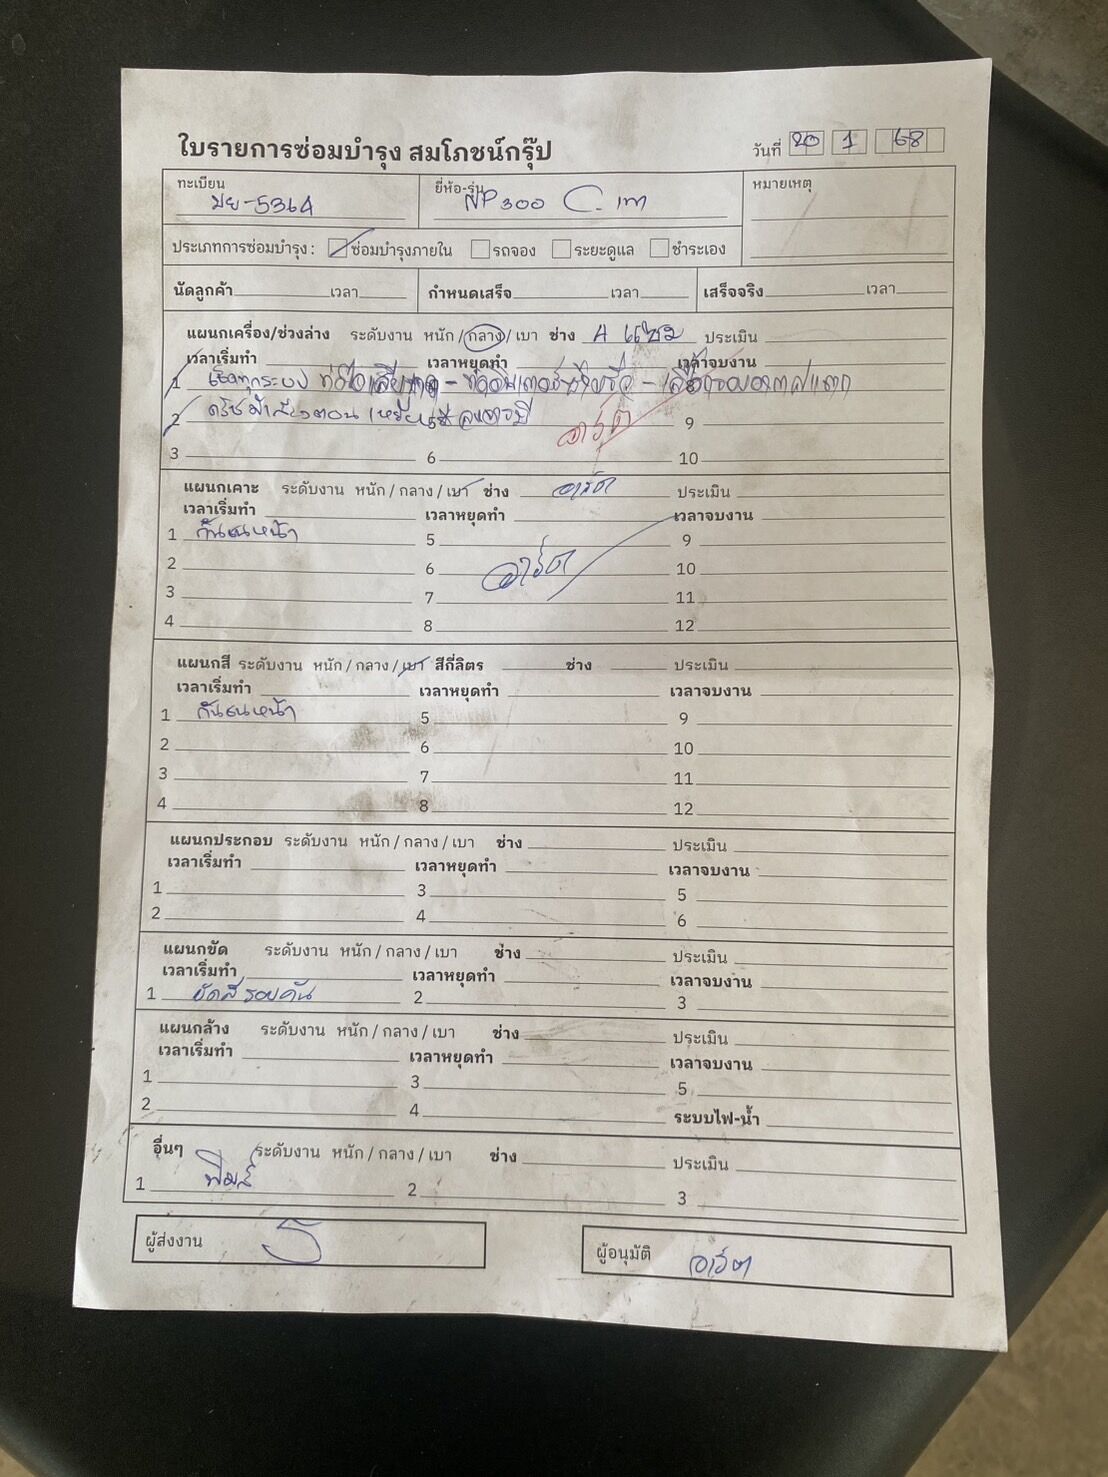 ใบรายการซ่อมบำรุง สมโภชน์กรุ๊ป
วันที่ 20 1 68
ทะเบียน ยี่ห้อ-รุ่น หมายเหตุ
ปย-5364 NP300 C. เทา
ประเภทการซ่อมบำรุง : ซ่อมบำรุงภายใน รถจอง ระยะดูแล ชำระเอง
นัดลูกค้า เวลา กำหนดเสร็จ เวลา เสร็จจริง เวลา
แผนกเครื่อง/ช่วงล่าง ระดับงาน หนัก / กลาง / เบา ช่าง A แซม ประเมิน
เวลาเริ่มทำ เวลาหยุดทำ เวลาจบงาน
1 เช็คทุกระบบ
2 9
อาร์ต
3 6 10
แผนกเคาะ ระดับงาน หนัก / กลาง / เบา ช่าง อาร์ต ประเมิน
เวลาเริ่มทำ เวลาหยุดทำ เวลาจบงาน
1 กันชนหน้า 5 9
2 6 อาร์ต 10
3 7 11
4 8 12
แผนกสี ระดับงาน หนัก / กลาง / เบา สีกี่ลิตร ช่าง ประเมิน
เวลาเริ่มทำ เวลาหยุดทำ เวลาจบงาน
1 กันชนหน้า 5 9
2 6 10
3 7 11
4 8 12
แผนกประกอบ ระดับงาน หนัก / กลาง / เบา ช่าง ประเมิน
เวลาเริ่มทำ เวลาหยุดทำ เวลาจบงาน
1 3 5
2 4 6
แผนกขัด ระดับงาน หนัก / กลาง / เบา ช่าง ประเมิน
เวลาเริ่มทำ เวลาหยุดทำ เวลาจบงาน
1 ขัดสีรอบคัน 2 3
แผนกล้าง ระดับงาน หนัก / กลาง / เบา ช่าง ประเมิน
เวลาเริ่มทำ เวลาหยุดทำ เวลาจบงาน
1 3 5
2 4 ระบบไฟ-น้ำ
อื่นๆ ระดับงาน หนัก / กลาง / เบา ช่าง ประเมิน
1 2 3
ผู้ส่งงาน ผู้อนุมัติ อาร์ต